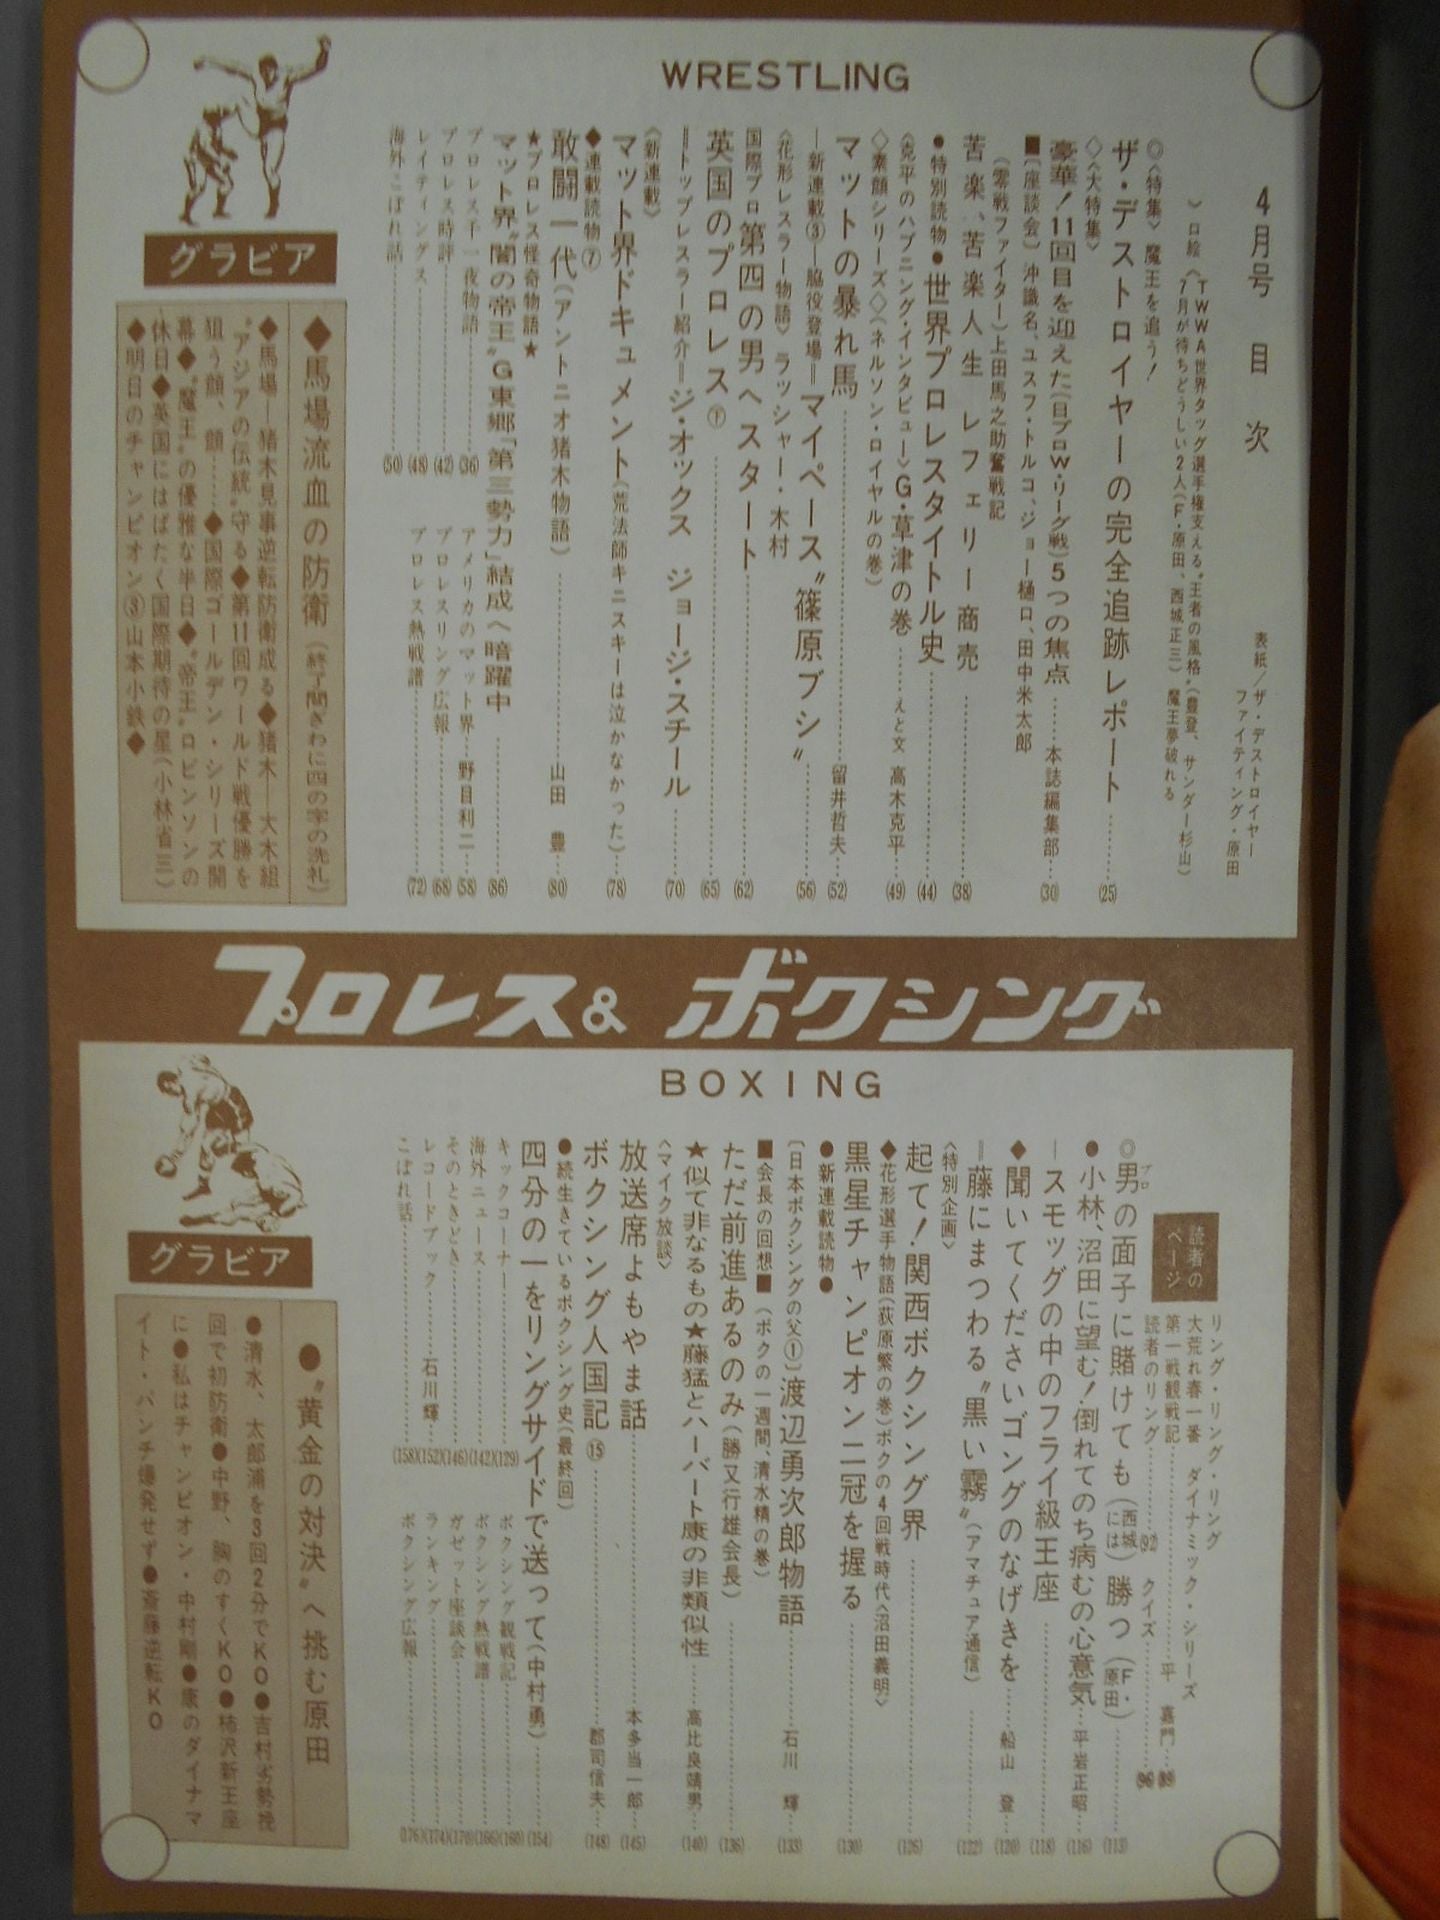 WRESTLING
4月号 目次
表紙/ザ・デストロイヤー
ファイティング・原田
口絵《TWWA世界タッグ選手権支える"王者の風格"(豊登、サンダー杉山)
7月が待ちどうしい2人(F・原田、西城正三) 魔王夢破れる
◎〈特集〉魔王を追う!
ザ・デストロイヤーの完全追跡レポート……(25)
◇〈大特集〉
豪華!11回目を迎えた(日プロW・リーグ戦)5つの焦点……本誌編集部…(30)
■〔座談会〕沖識名、ユスフ・トルコ、ジョー樋口、田中米太郎
(零戦ファイター)上田馬之助奮戦記
苦楽、苦楽人生 レフェリー商売……(38)
●特別読物●世界プロレスタイトル史……(44)
〈克平のハプニング・インタビュー〉G・草津の巻……えと文 高木克平…(49)
◇素顔シリーズ◇〈ネルソン・ロイヤルの巻〉
マットの暴れ馬……留井哲夫…(52)
―新連載③―脇役登場=マイペース"篠原ブシ"……(56)
〈花形レスラー物語〉ラッシャー・木村
国際プロ第四の男へスタート……(62)
英国のプロレス㊦……(65)
=トップレスラー紹介=ジ・オックス ジョージ・スチール……(70)
〈新連載〉
マット界ドキュメント(荒法師キニスキーは泣かなかった)…(78)
◆連載読物⑦
敢闘一代(アントニオ猪木物語)……山田 豊…(80)
★プロレス怪奇物語★
マット界"闇の帝王"G東郷「第三勢力」結成へ暗躍中……(86)
プロレス千一夜物語……(36)
アメリカのマット界…野目利二…(58)
プロレス時評……(42)
プロレスリング広報……(68)
レイティングス……(48)
プロレス熱戦譜……(72)
海外こぼれ話……(50)
グラビア
◆馬場流血の防衛(終了間ぎわに四の字の洗礼)
◆馬場―猪木見事逆転防衛成る◆猪木―大木組
"アジアの伝統"守る◆第11回ワールド戦優勝を
狙う顔、顔……◆国際ゴールデン・シリーズ開
幕◆"魔王"の優雅な半日◆"帝王"ロビンソンの
休日◆英国にはばたく国際期待の星(小林省三)
◆明日のチャンピオン③山本小鉄◆
プロレス&ボクシング
BOXING
読者のページ
リング・リング・リング
大荒れ春一番 ダイナミック・シリーズ
第一戦観戦記……平 嘉門…(89)
読者のリング……(92) クイズ……(96)
◎男の面子に賭けても(西城には)勝つ(F・原田)……(113)
プロ
●小林、沼田に望む!倒れてのち病むの心意気…平岩正昭…(116)
―スモッグの中のフライ級王座……(118)
◆聞いてくださいゴングのなげきを……船山 登…(120)
=藤にまつわる"黒い霧"(アマチュア通信)……(122)
〈特別企画〉
起て!関西ボクシング界……(126)
◆花形選手物語(荻原繁の巻)ボクの4回戦時代〈沼田義明〉
黒星チャンピオン二冠を握る……(130)
●新連載読物●
〔日本ボクシングの父①〕渡辺勇次郎物語……石川 輝…(133)
■会長の回想■(ボクの一週間、清水精の巻)
ただ前進あるのみ(勝又行雄会長)……(136)
★似て非なるもの★藤猛とハーバート康の非類似性……高比良靖男…(140)
〈マイク放談〉
放送席よもやま話……本多当一郎…(145)
ボクシング人国記⑮……郡司信夫…(148)
●続生きているボクシング史(最終回)
四分の一をリングサイドで送って(中村勇)……(154)
キックコーナー……(129)
ボクシング観戦記……(160)
海外ニュース……(142)
ボクシング熱戦譜……(166)
そのときどき……(146)
ガゼット座談会……(170)
レコードブック……石川輝…(152)
ランキング……(174)
こぼれ話……(158)
ボクシング広報……(176)
グラビア
●"黄金の対決"へ挑む原田
●清水、太郎浦を3回2分でKO●吉村劣勢挽
回で初防衛●中野、胸のすくKO●柿沢新王座
に●私はチャンピオン・中村剛●康のダイナマ
イト・パンチ爆発せず●斎藤逆転KO